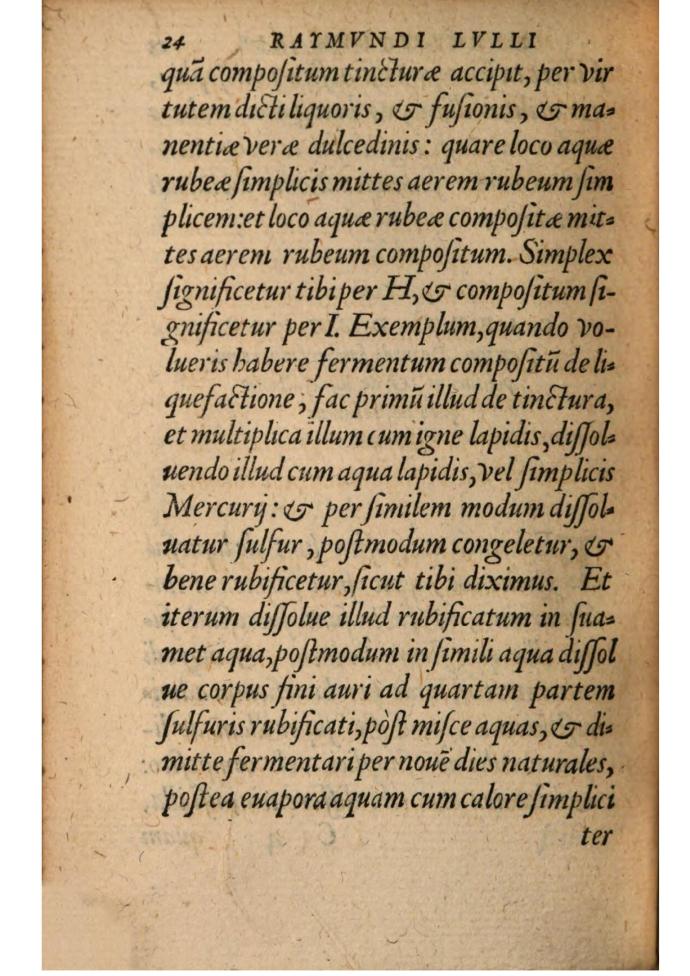 24 RAYMVNDI LVLLI
quā compoſitum tincturæ accipit, per vir
tutem dicti liquoris, & fuſionis, & ma-
nentiæ veræ dulcedinis: quare loco aquæ
rubeæ ſimplicis mittes aerem rubeum ſim
plicem:et loco aquæ rubeæ compoſitæ mit-
tes aerem rubeum compoſitum. Simplex
ſignificetur tibi per H, & compoſitum ſi-
gnificetur per I. Exemplum, quando vo-
lueris habere fermentum compoſitū de li-
quefactione, fac primū illud de tinctura,
et multiplica illum cum igne lapidis, diſſol-
uendo illud cum aqua lapidis, vel ſimplicis
Mercurij: & per ſimilem modum diſſol-
uatur ſulfur, poſtmodum congeletur, &
bene rubificetur, ſicut tibi diximus. Et
iterum diſſolue illud rubificatum in ſua-
met aqua, poſtmodum in ſimili aqua diſſol
ue corpus fini auri ad quartam partem
ſulfuris rubificati, pòſt miſce aquas, & di-
mitte fermentari per nouē dies naturales,
poſtea euapora aquam cum calore ſimplici
ter